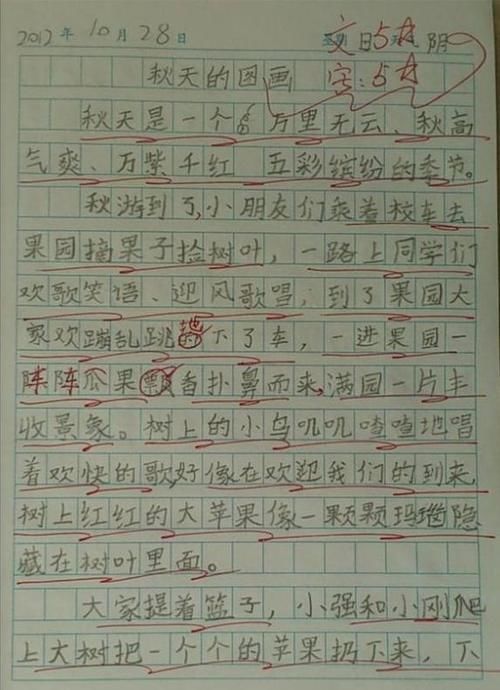 2012年10月28日 日 阴
文:5t
秋天的图画 字:5t
秋天是一个 万里无云、秋高
气爽、万紫千红 五彩缤纷的季节。
秋游到了,小朋友们乘着校车去
果园摘果子捡树叶,一路上同学们
欢歌笑语、迎风歌唱;到了果园大
家欢蹦乱跳地下了车,一进果园一
阵阵瓜果飘香扑鼻而来,满园一片丰
收景象。树上的小鸟叽叽喳喳地唱
着欢快的歌,好像在欢迎我们的到来,
树上红红的大苹果像一颗颗玛瑙隐
藏在树叶里面。
大家提着篮子,小强和小刚爬
上大树把一个个的苹果扔下来,下